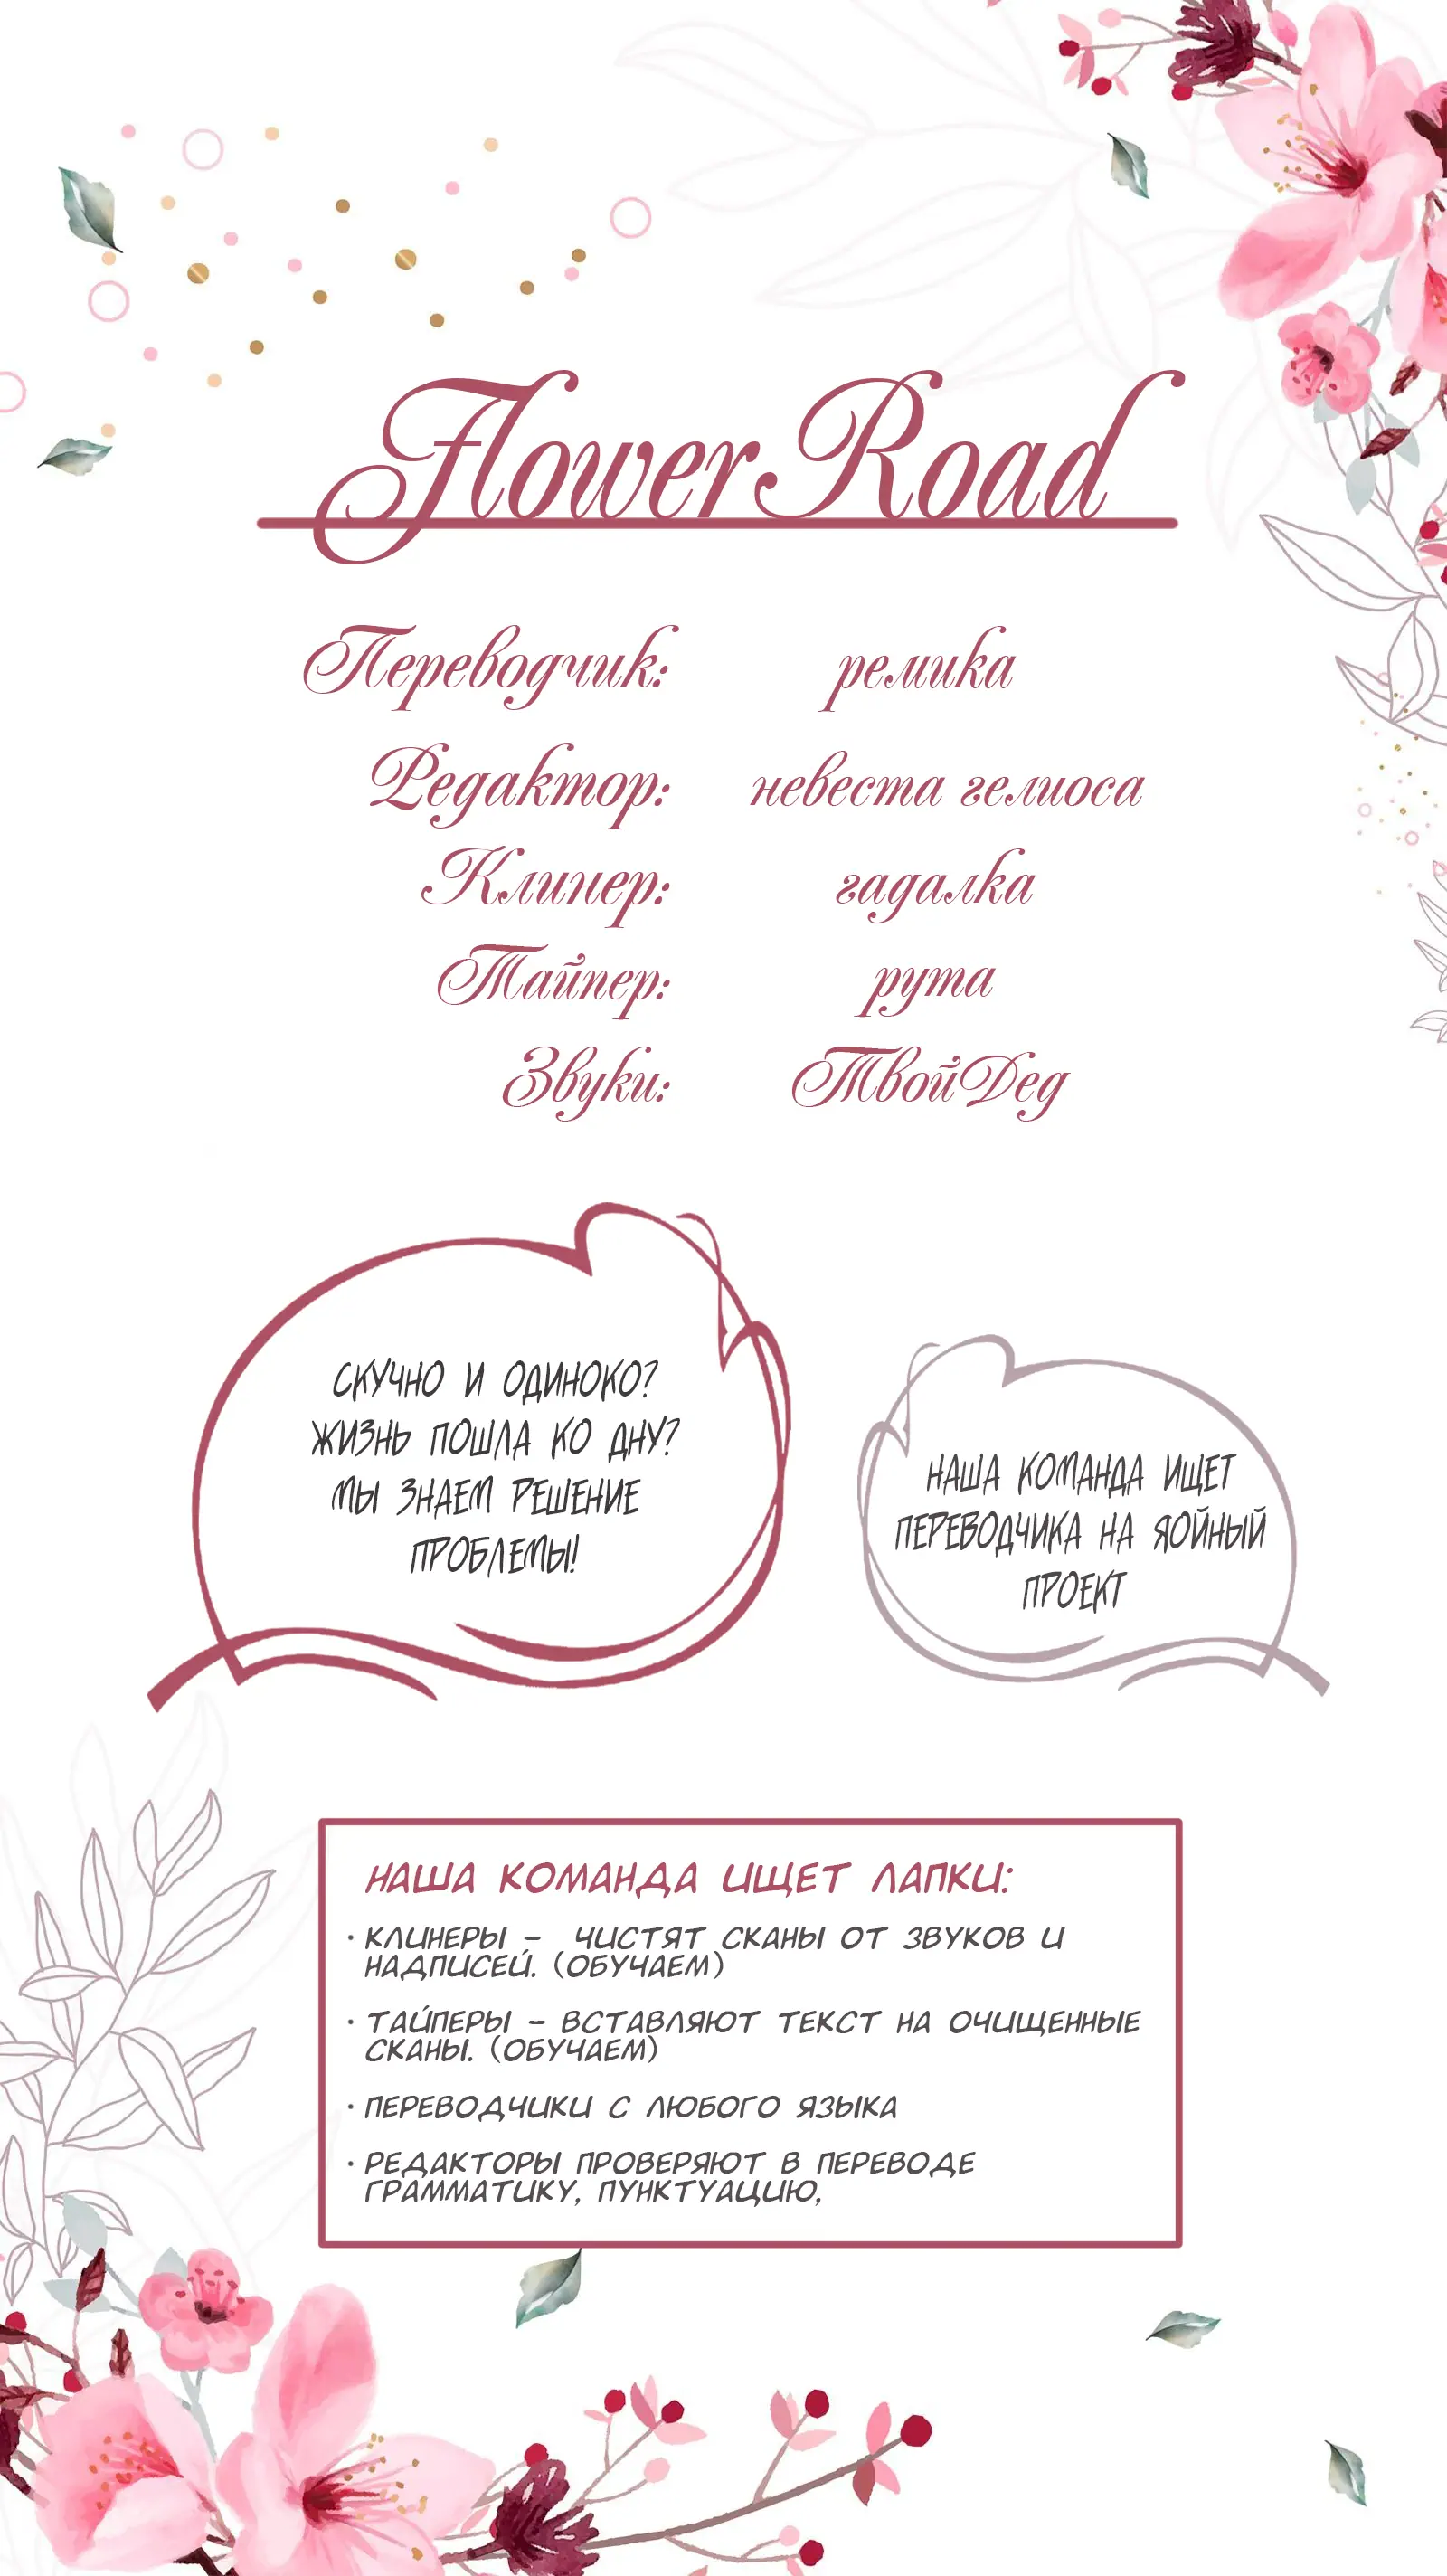 Flower Road
Переводчик: ремика
Редактор: невеста гелиоса
Клинер: гадалка
Тайпер: рута
Звуки: ТвойДед
СКУЧНО И ОДИНОКО?
ЖИЗНЬ ПОШЛА КО ДНУ?
МЫ ЗНАЕМ РЕШЕНИЕ
ПРОБЛЕМЫ!
НАША КОМАНДА ИЩЕТ
ПЕРЕВОДЧИКА НА ЯОЙНЫЙ
ПРОЕКТ
НАША КОМАНДА ИЩЕТ ЛАПКИ:
· КЛИНЕРЫ – ЧИСТЯТ СКАНЫ ОТ ЗВУКОВ И
НАДПИСЕЙ. (ОБУЧАЕМ)
· ТАЙПЕРЫ – ВСТАВЛЯЮТ ТЕКСТ НА ОЧИЩЕННЫЕ
СКАНЫ. (ОБУЧАЕМ)
· ПЕРЕВОДЧИКИ С ЛЮБОГО ЯЗЫКА
· РЕДАКТОРЫ ПРОВЕРЯЮТ В ПЕРЕВОДЕ
ГРАММАТИКУ, ПУНКТУАЦИЮ,